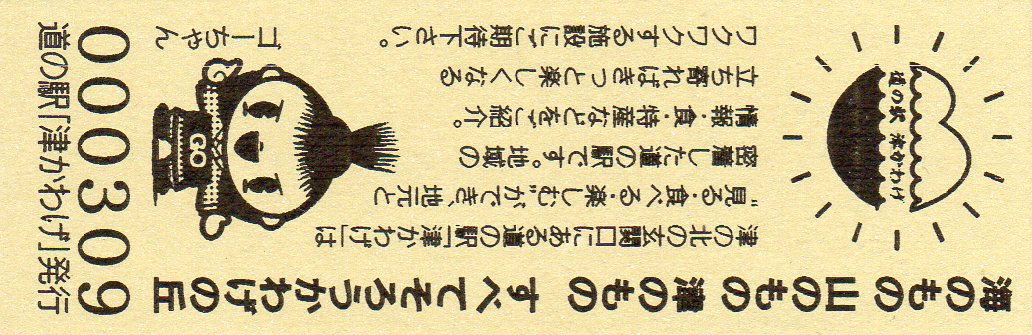 海のもの 山のもの 津のもの すべてそろうつかわけの丘
津の北の玄関口にある道の駅「津かわげ」は
“見る・食べる・楽しむ”ができ、地元と
密着した道の駅です。地域の
情報・食・特産などをご紹介。
立ち寄ればきっと楽しくなる
ワクワクする施設にご期待下さい。
道の駅 津かわげ
GO
ゴーちゃん
000309
道の駅「津かわげ」発行